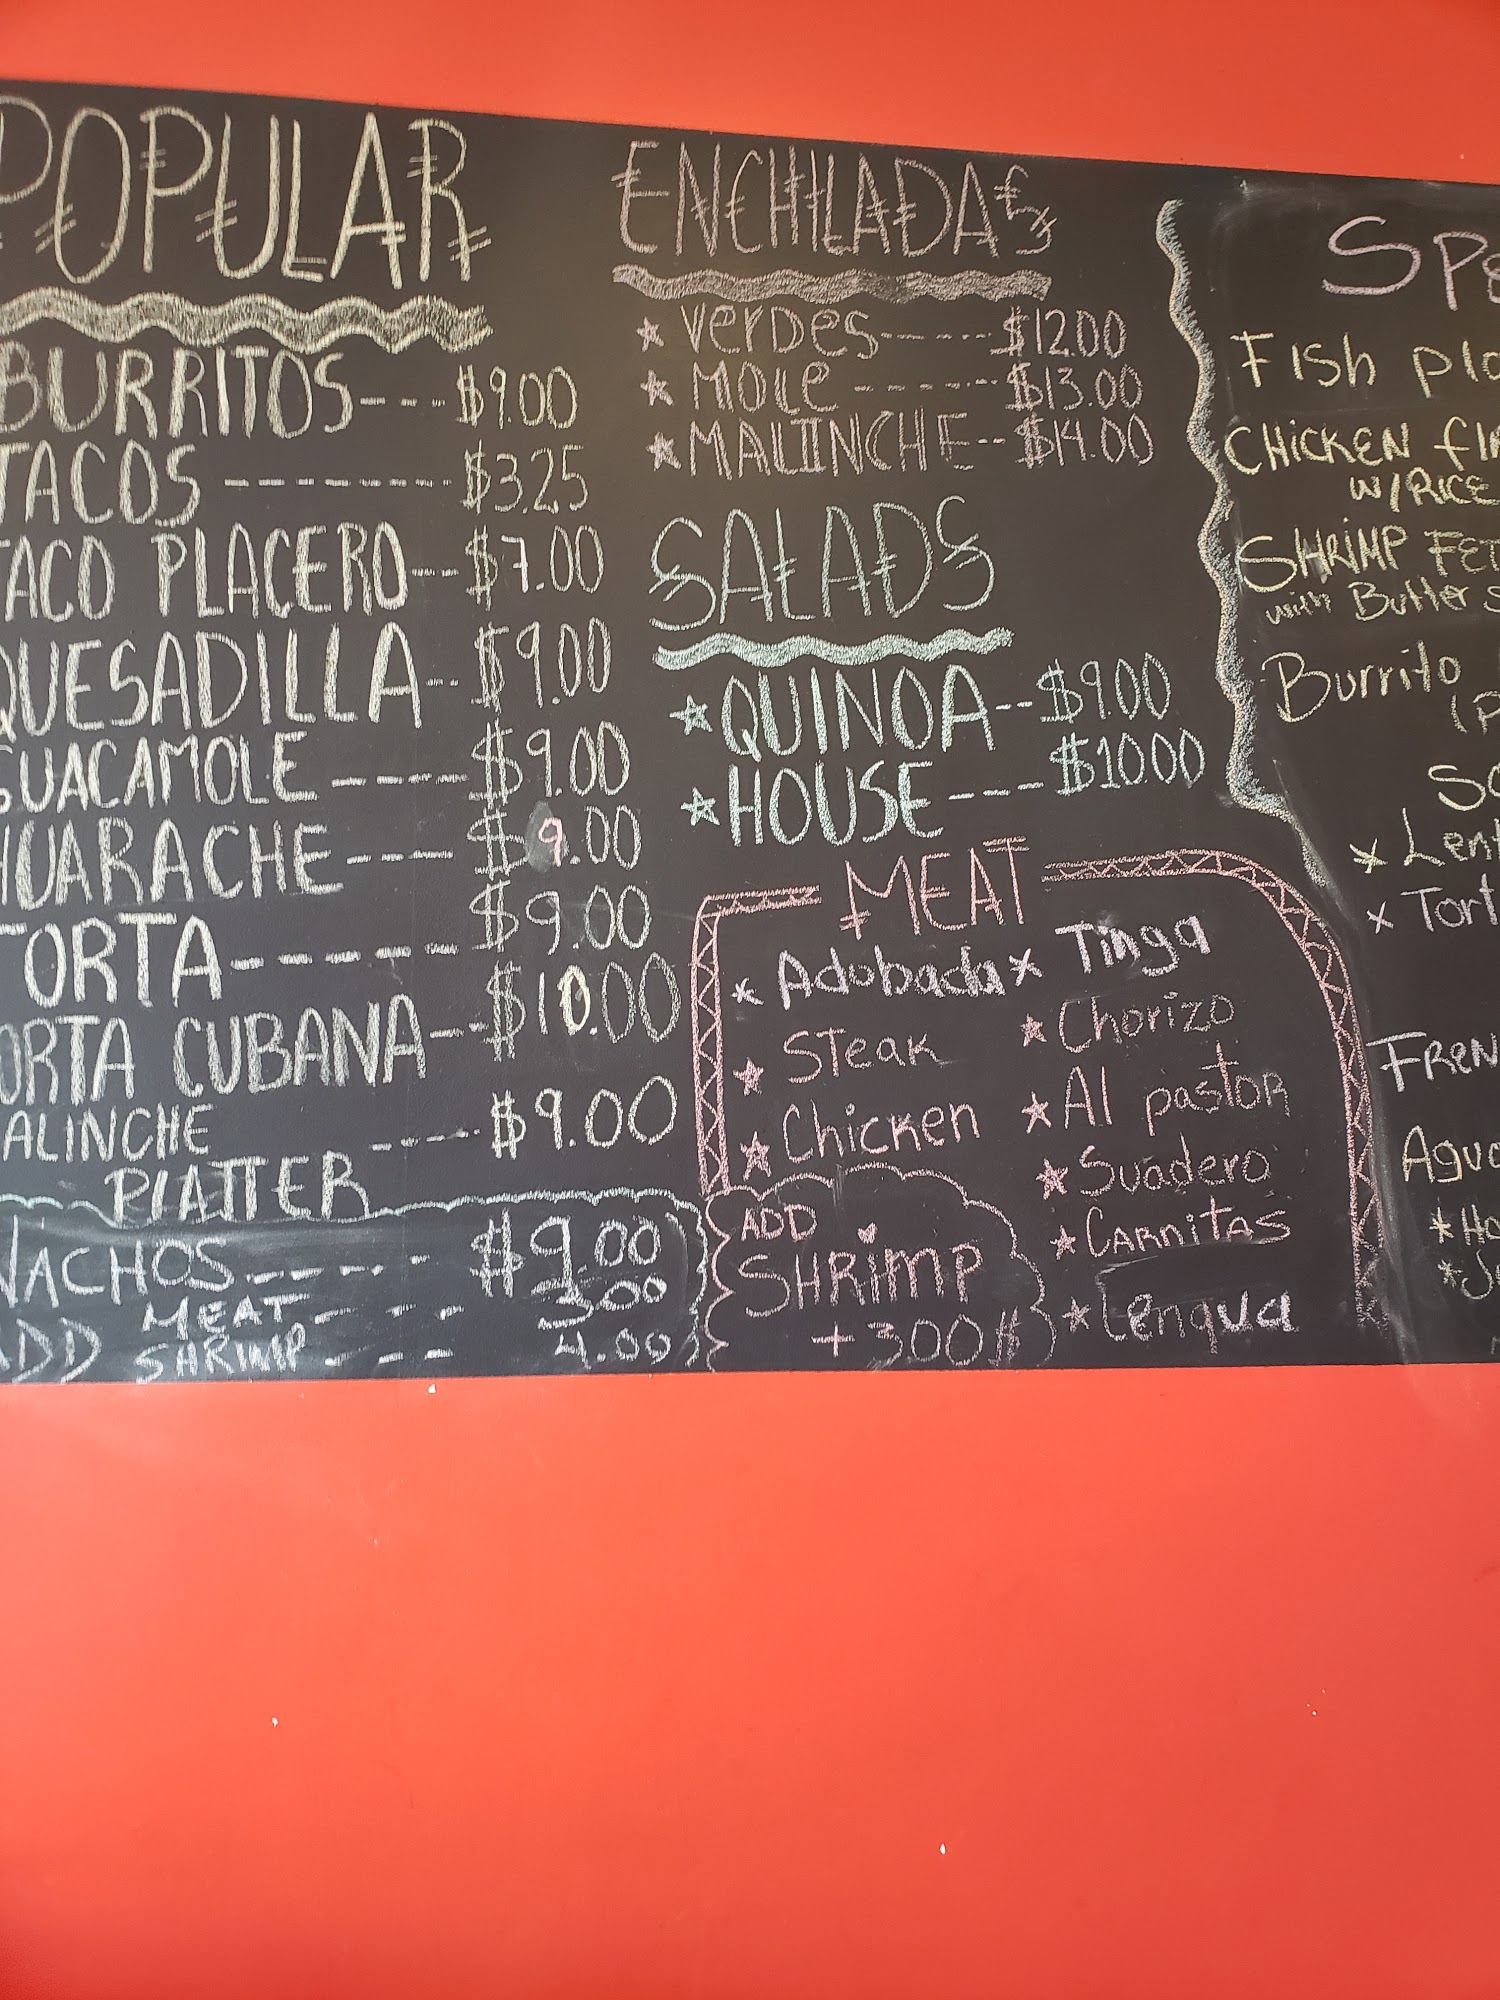 POPULAR
BURRITOS---$9.00
TACOS --------$3.25
TACO PLACERO---$7.00
QUESADILLA--$9.00
GUACAMOLE ----$9.00
HUARACHE---$9.00
TORTA------$9.00
TORTA CUBANA--$10.00
ALINCHE
PLATTER ----$9.00
NACHOS-----$9.00
ADD MEAT--- 3.00
SHRIMP--- 4.00
ENCHILADAS
★ VERDES-----$12.00
★ MOLE ------$13.00
★ MALINCHE--$14.00
SALADS
★ QUINOA--$9.00
★ HOUSE ----$10.00
MEAT
* Adobada
★ STEAK
★ Chicken
* Tinga
★ Chorizo
★ Al pastor
★ Suadero
★ CARNITAS
★ Lengua
ADD
SHRIMP
+300$
Spe
FISH pla
CHICKEN
W/RICE
SHRIMP FET
with Butter S
Burrito
(P
So
* Lent
* Tort
FREN
Agua
*Ho
*Ja